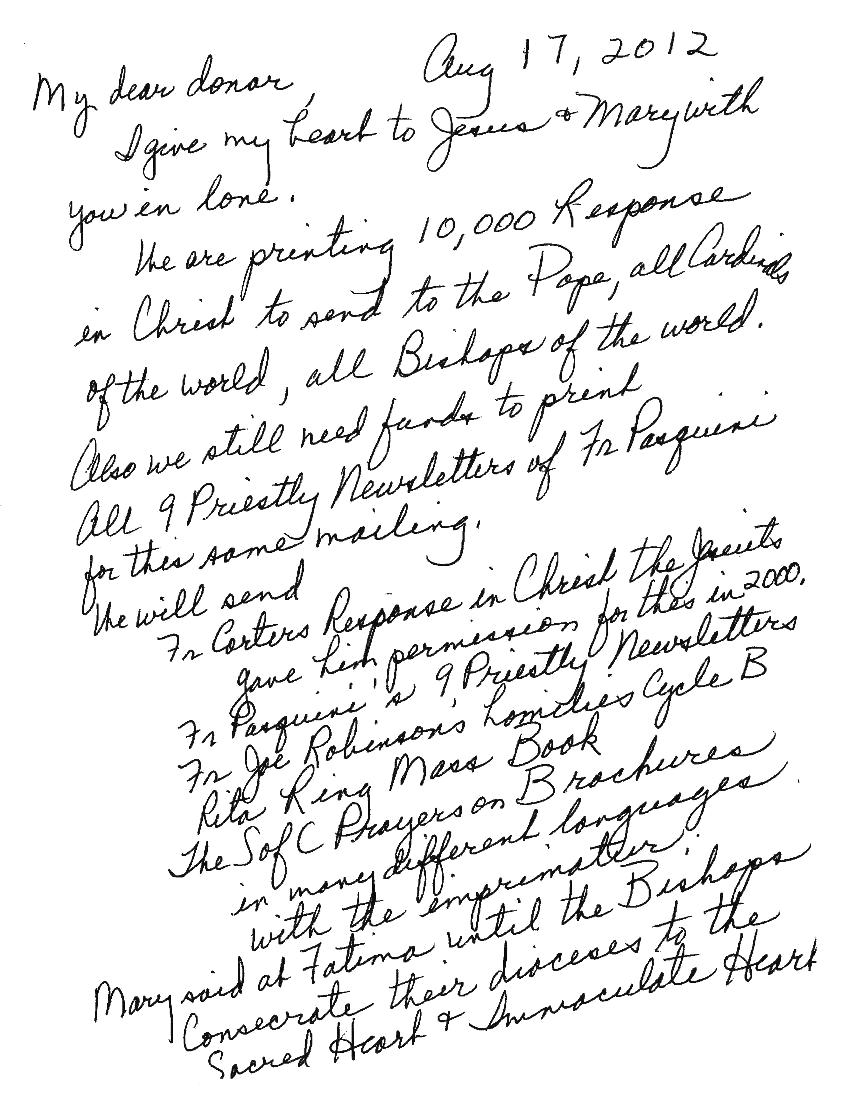 Aug 17, 2012
My dear donor,
I give my heart to Jesus & Mary with
you in love.
We are printing 10,000 Response
in Christ to send to the Pope, all Cardinals
of the world, all Bishops of the world.
Also we still need funds to print
All 9 Priestly Newsletters of Fr Pasquini
for this same mailing.
We will send
Fr Carters Response in Christ the Jesuits
gave him permission for this in 2000.
Fr Pasquini's 9 Priestly Newsletters
Fr Joe Robinson's homilies Cycle B
Rita Ring Mass Book
The S of C Prayers on Brochures
in many different languages
with the imprimatur.
Mary said at Fatima until the Bishops
Consecrate their dioceses to the
Sacred Heart & Immaculate Heart